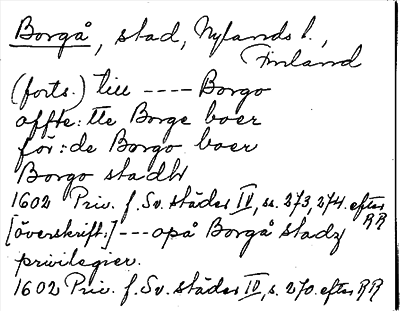 Borgå, stad, Nylands l.,
Finland
(forts.) till ---- Borgo
affte: tte Borge boer
för: de Borgo boer
Borgo stadtz
1602 Priv. f. Sv. städer IV, ss. 273, 274. efter RR
[överskrift:] --- opå Borgå stadz
privilegier.
1602 Priv. f. Sv. städer IV, s. 270. efter RR